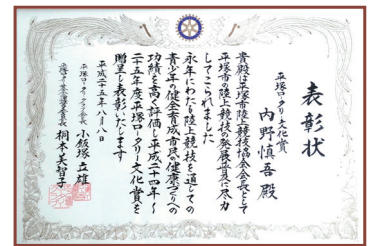 表彰状
平塚ロータリー文化賞
内野慎吾 殿
貴殿は平塚市陸上競技協会会長として
平塚市の陸上競技の発展普及に尽力
してこられました
永年にわたり陸上競技を通しての
青少年の健全育成市民の健康づくりへの
功績を高く評価し平成二十四年〜
二十五年度平塚ロータリー文化賞を
贈呈し表彰いたします
平成二十五年八月八日
平塚ロータリークラブ会長 小飯塚立雄
委員長 桐本美智子